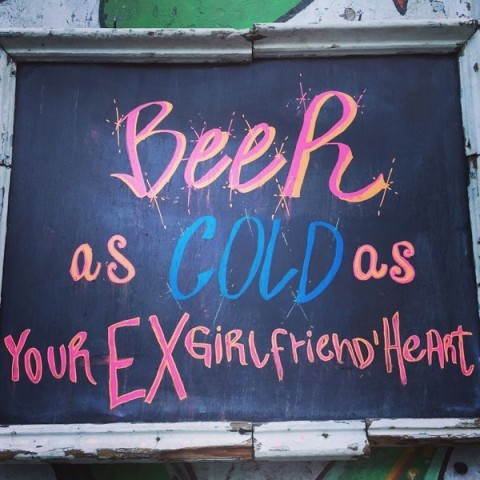 BeeR
as COLD as
YOUR EX GiRLfrieND' HeART